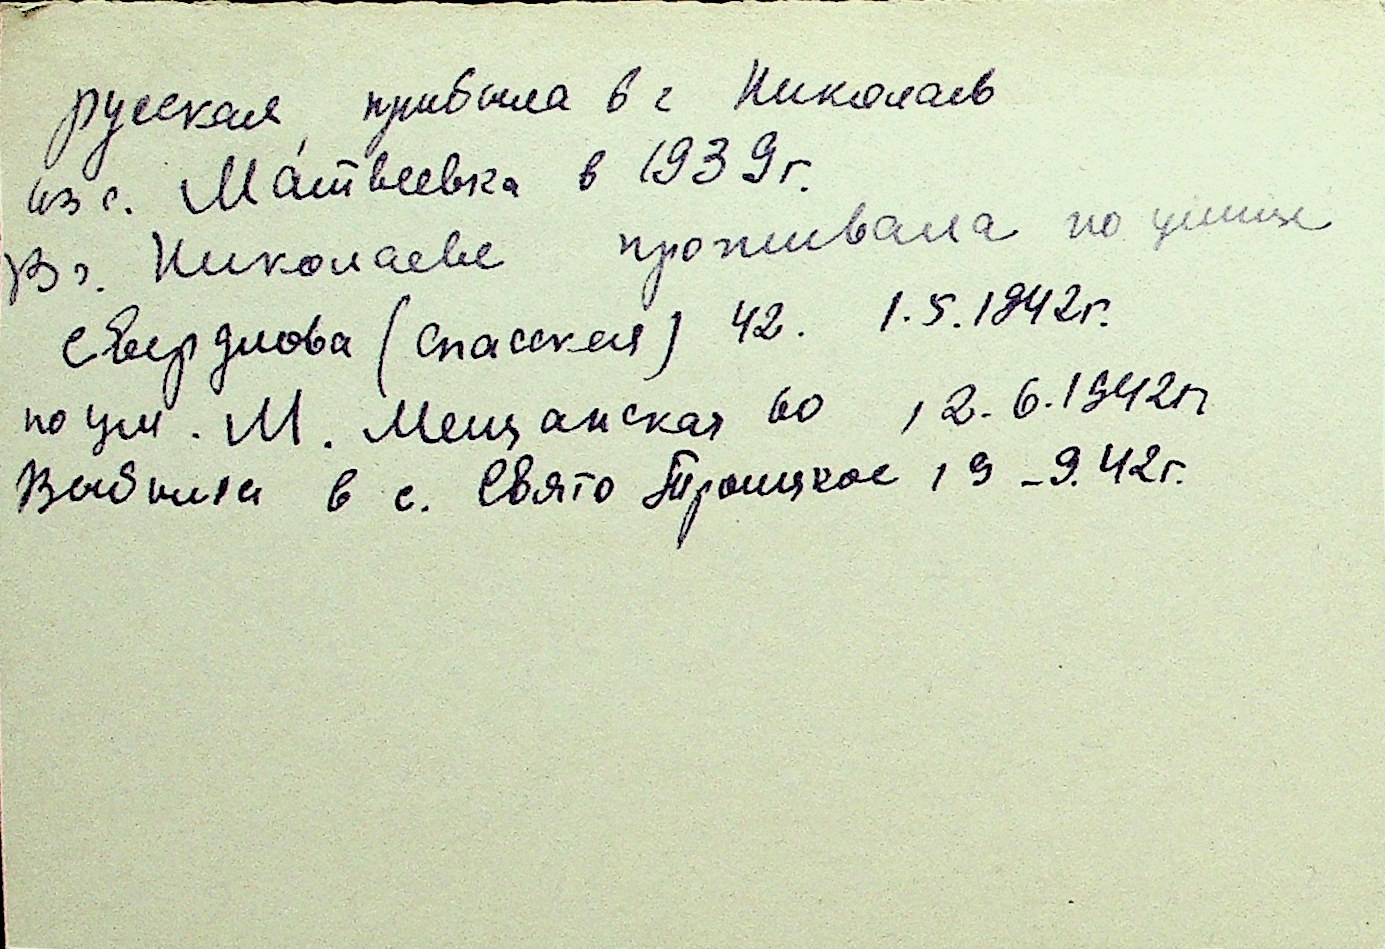 русская, прибыла в г Николаев
из с. Матвеевка в 1939г.
В г. Николаеве проживала по улице
Свердлова (Спасская) 42. 1.5.1942г.
по ул. М. Мещанская 60 12.6.1942г
Выбыла в с. Свято Троицкое 19-9.42г.